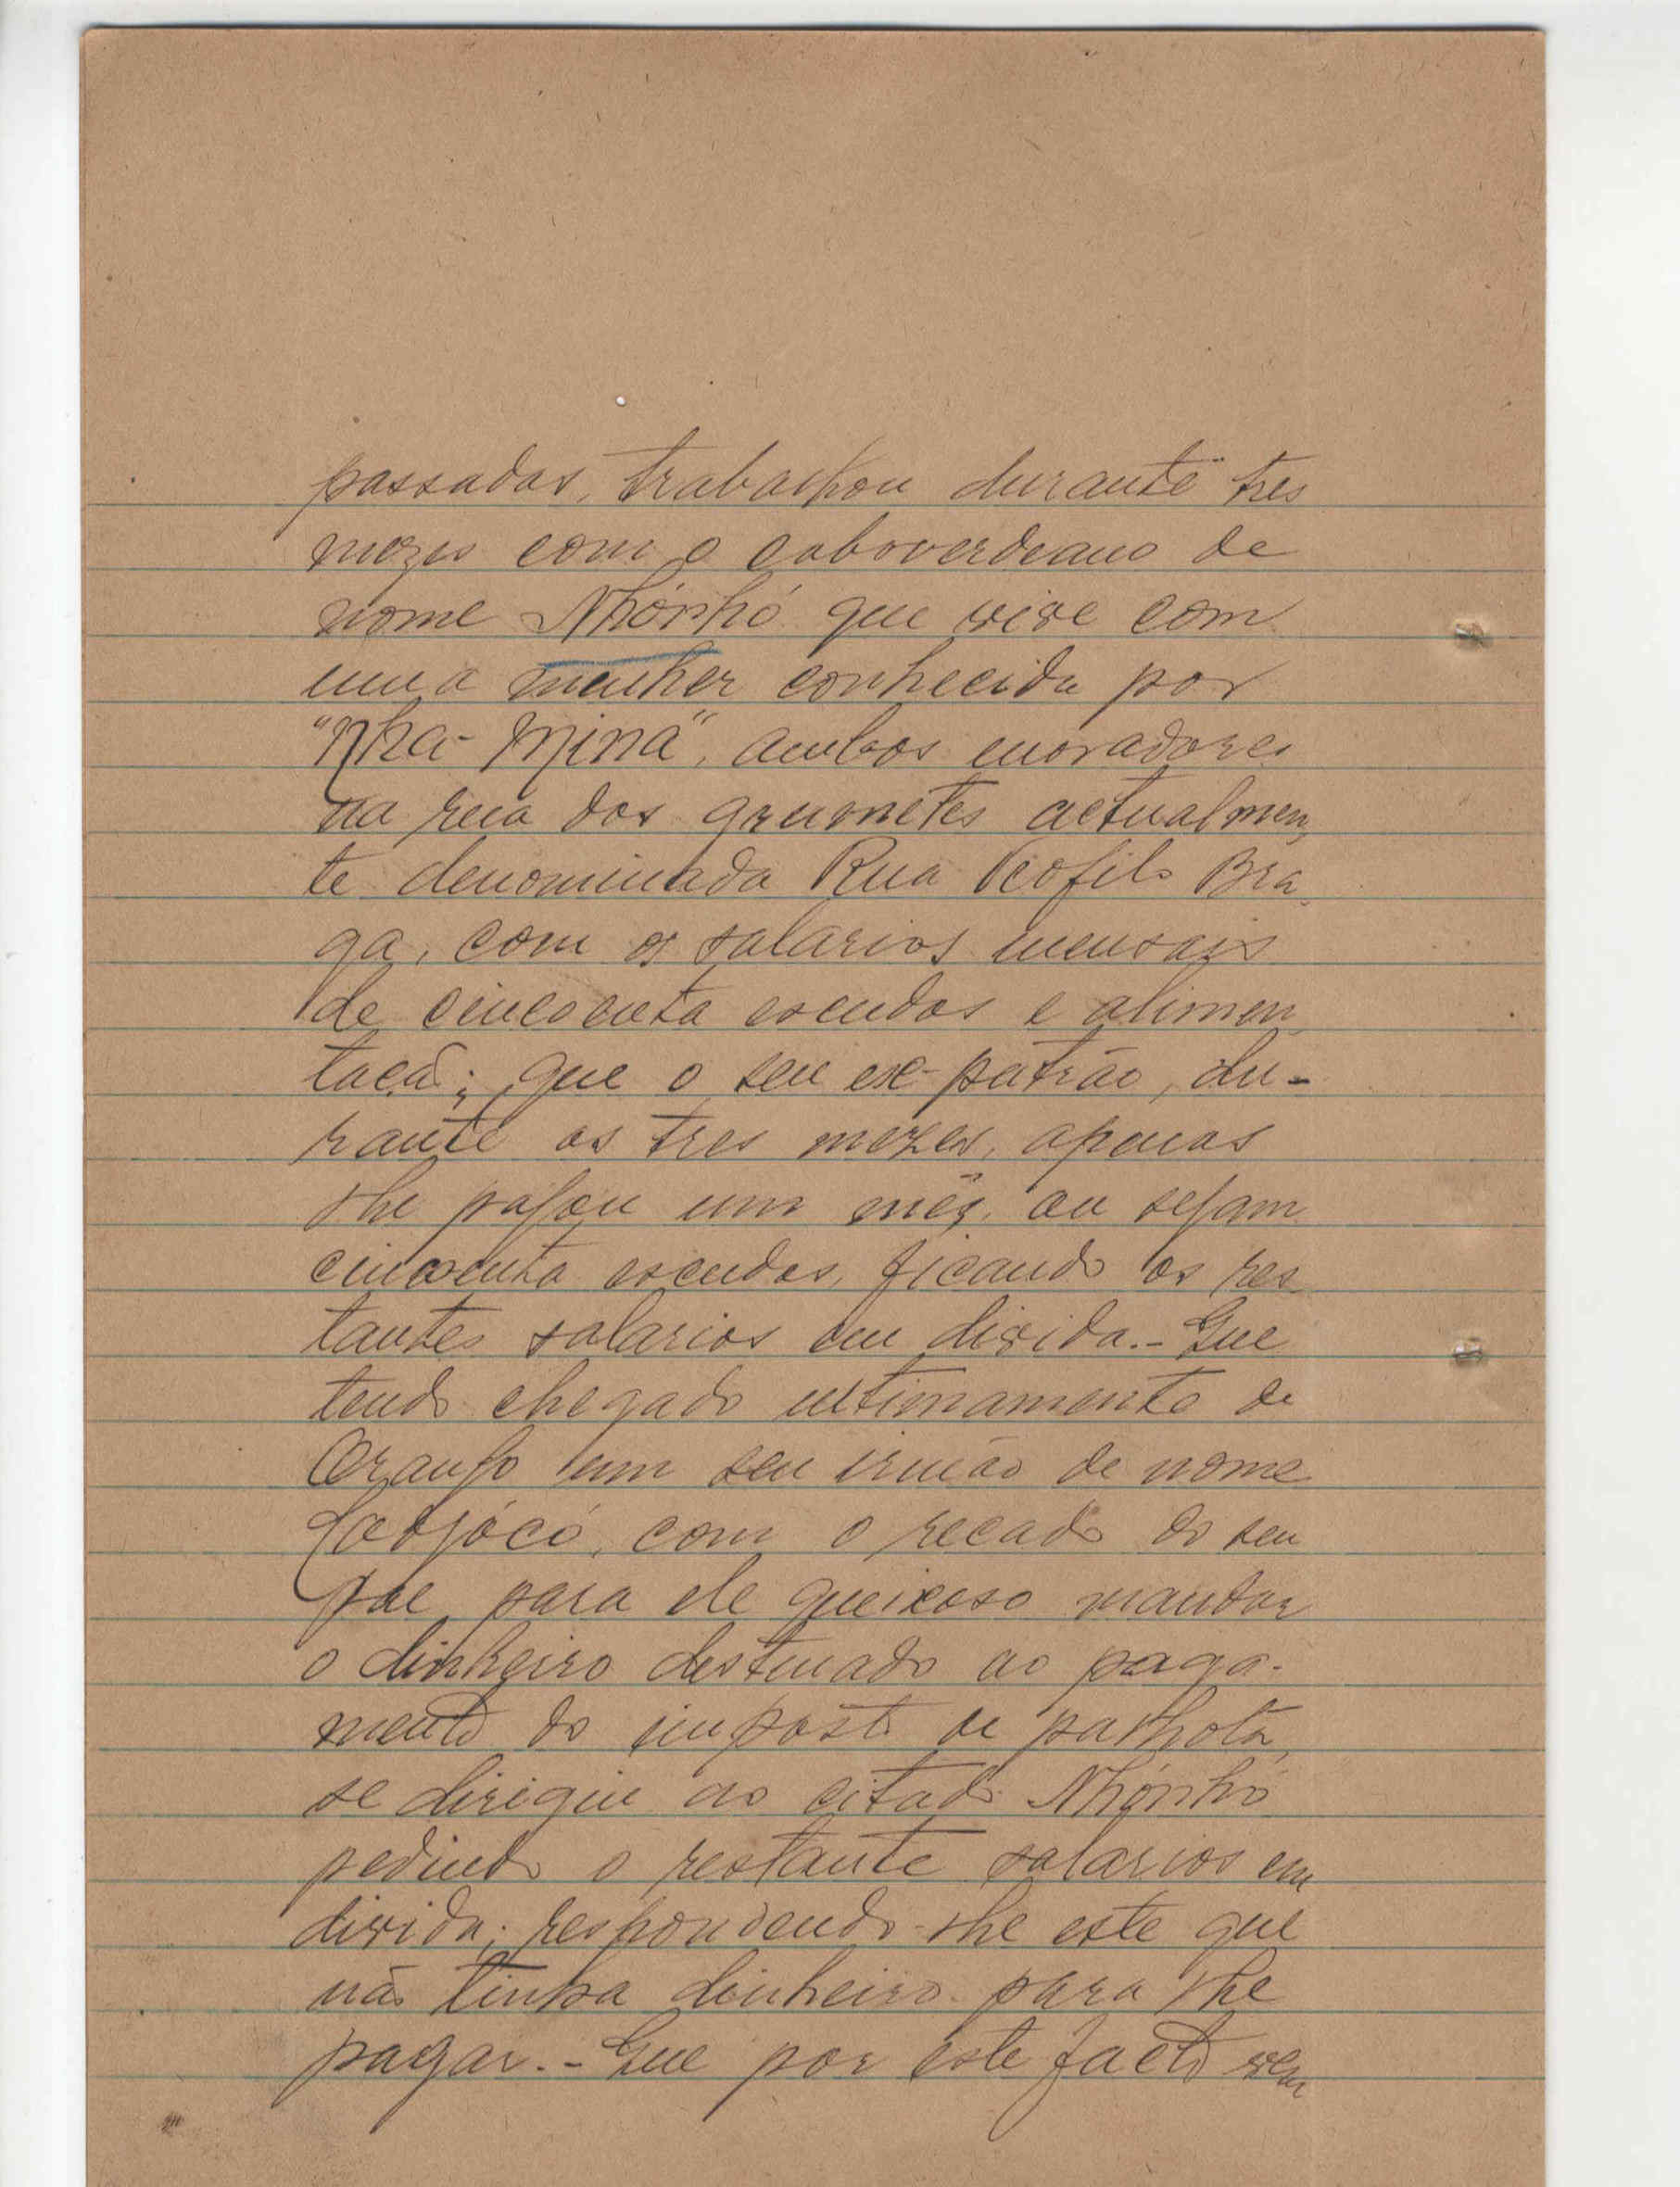 passadas, trabalhou durante tres
mezes com o caboverdeano de
nome Nhónhó que vive com
uma mulher conhecida por
"Nha-Mina", ambos moradores
na rua dos grumetes actualmen
te denominada Rua Teofilo Bra
ga, com os salarios mensais
de cincoenta escudos e alimen
tação; que o seu ex-patrão, du-
rante os tres mezes, apenas
lhe pagou um mês, ou sejam
cincoenta escudos, ficando os res
tantes salarios em divida.- Que
tendo chegado ultimamente de
um seu irmão de nome
com o recado do seu
pae para ele queixoso mandar
o dinheiro destinado ao paga-
mento do imposto de palhota,
se dirigiu ao citado Nhónhó
pedindo o restante salarios em
divida; respondendo-lhe este que
não tinha dinheiro para lhe
pagar.- Que por este facto vem